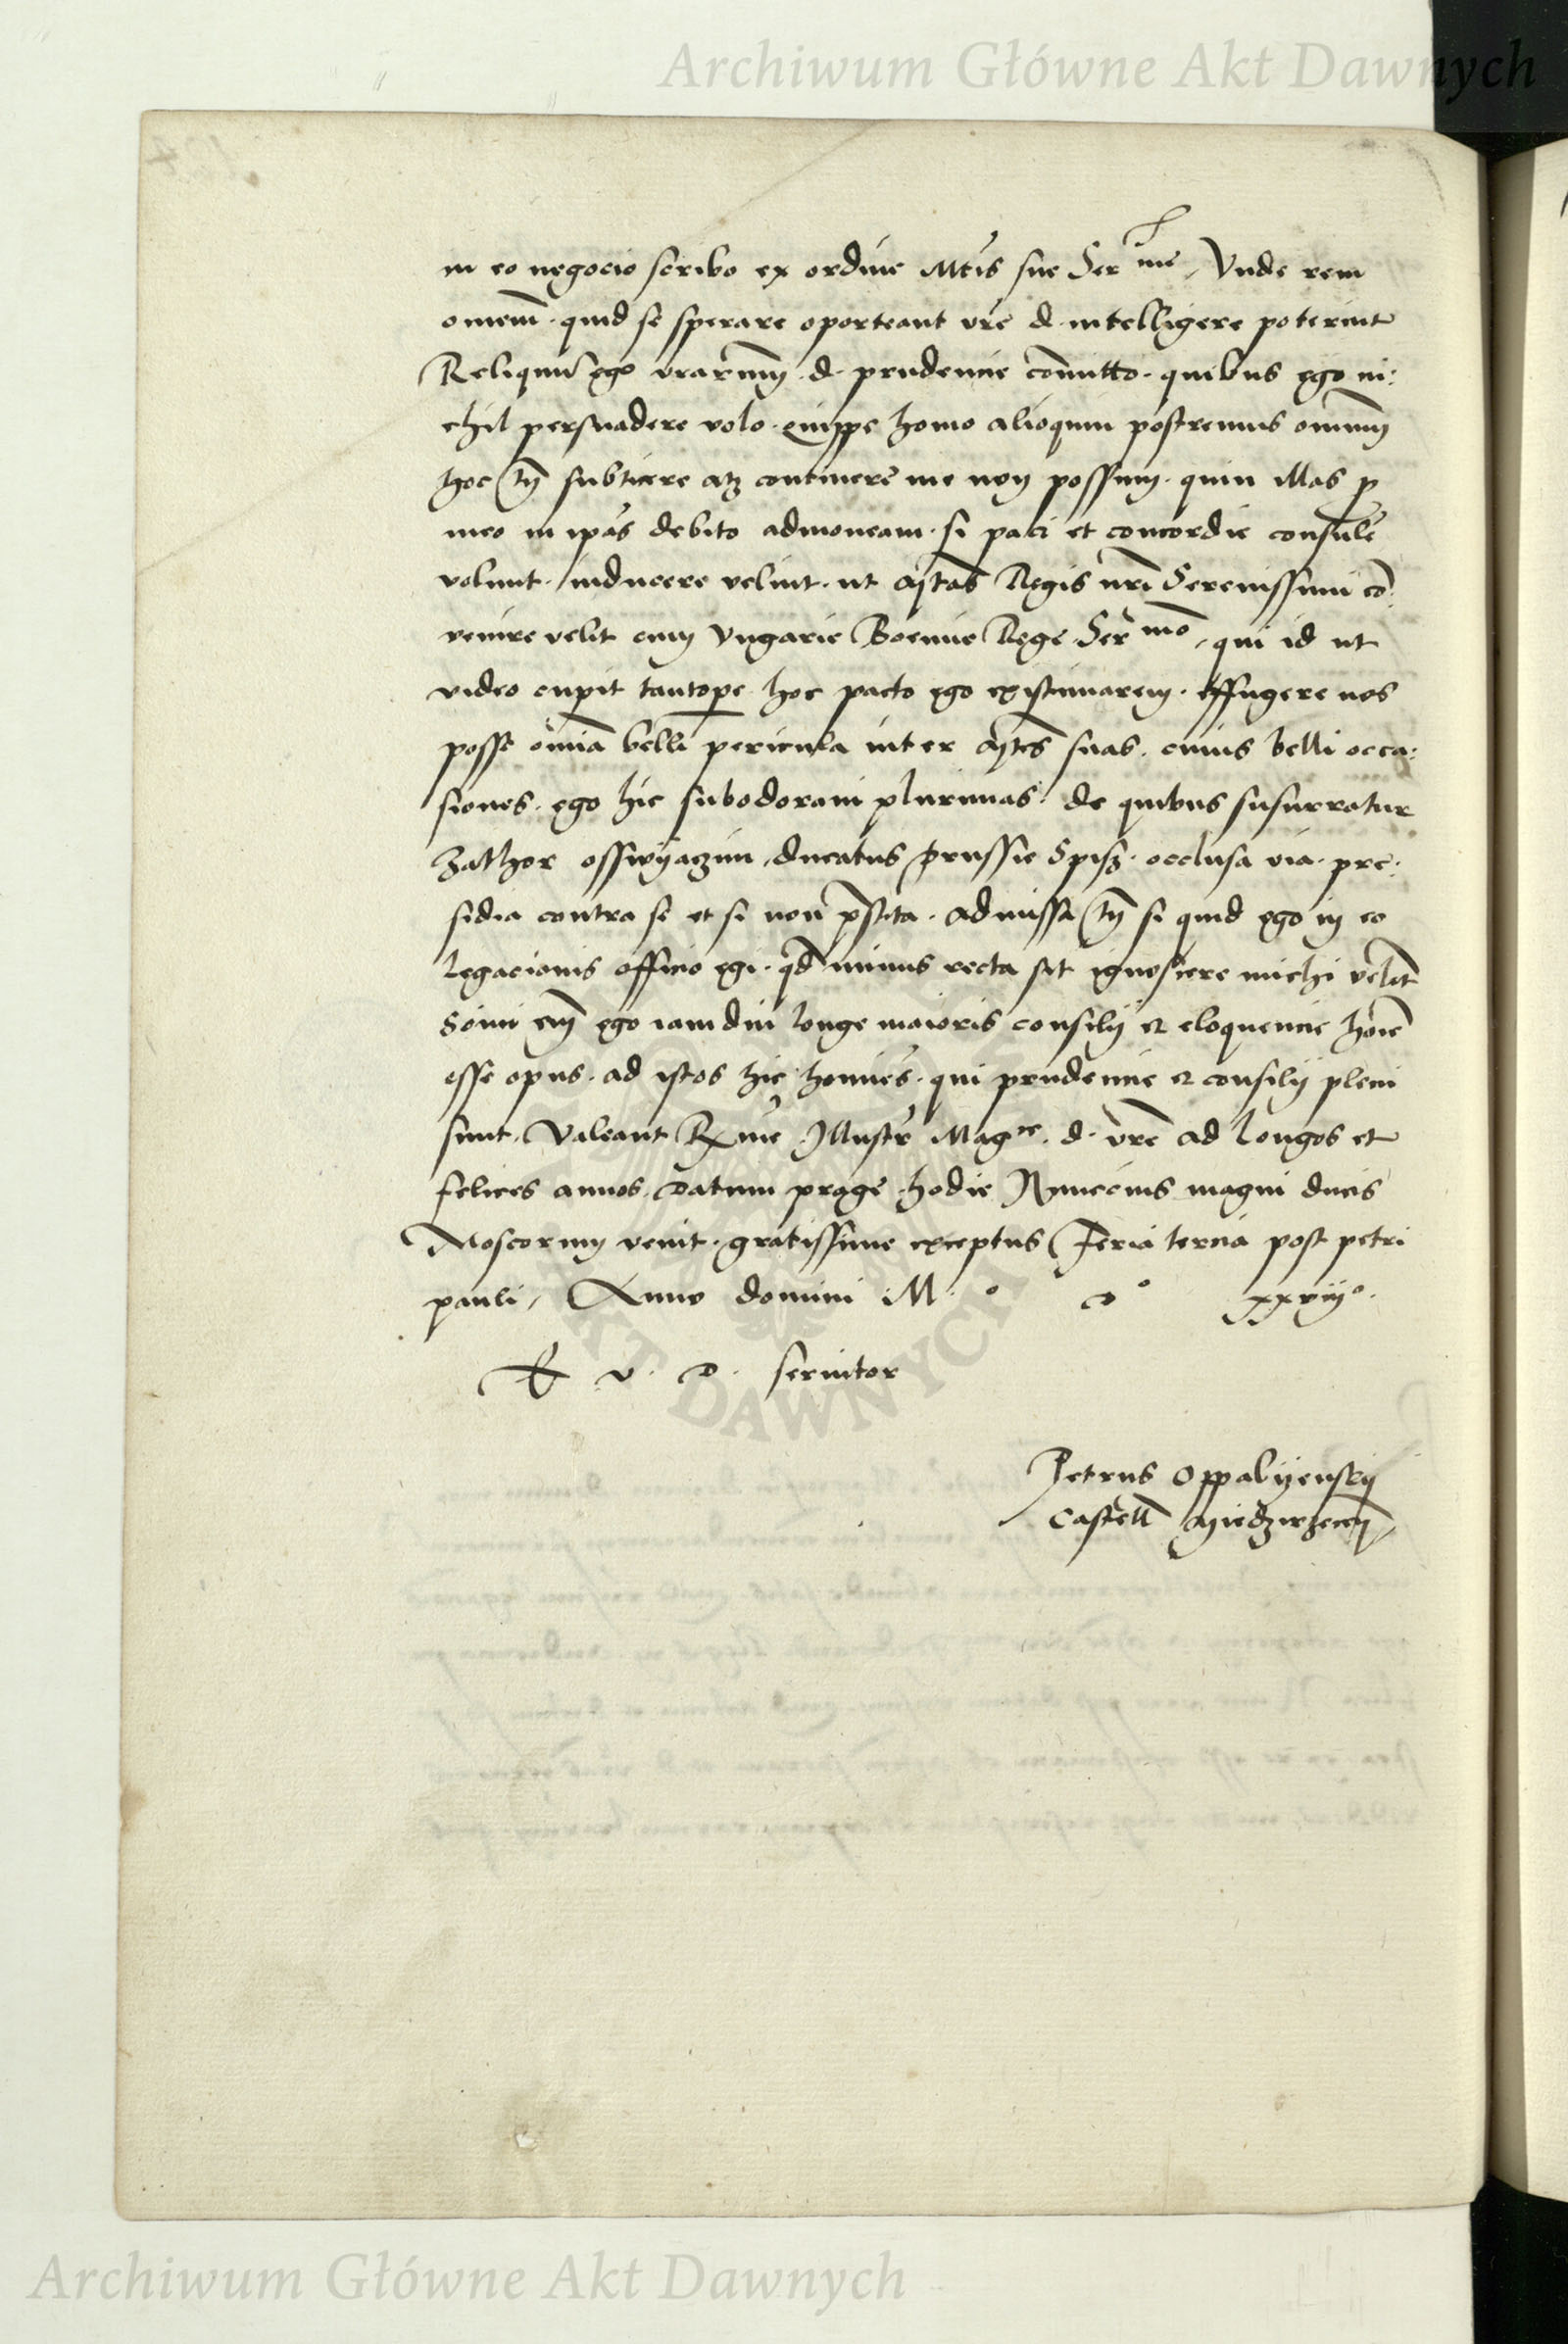 Archiwum Główne Akt Dawnych
in eo negocio scribo ex ordine Mtis sue Ser me, Unde rem
omnem quid se sperare oporteant vre d. intelligere poterint
Reliquu ego vrarum d. prudencie comitto. quibus ego ni:
chil persuadere volo. quippe homo alioquin postremus omnium
hoc tn subticere atque continere me non possum. quin illas p
meo in ipas debito admoneam. si paci et concordie consule
volunt. inducere velint. ut Mtas Regis nri Serenissimi co:
venire velit cum Ungarie Boemie Rege Ser mo, qui id ut
video cupit tantope hoc pacto ego existimarem. effugere nos
posse omia belli pericula inter Mtes suas. cuius belli occa:
siones. ego hic subodoravi plurimas. de quibus susurratur
Zathor osswyaczim, ducatus prussie Spisz. occlusa via. pre:
sidia contra se et si non pstita. admissa tn si quid ego in eo
legacionis officio egi. qd minus recta sit ignoscere michi velint
Scivi em ego iam diu longe maioris consilij et eloquencie hoie
esse opus. ad istos hic homies. qui prudencie et consilij pleni
sunt. Valeant R me Illustr Mag ce. d. vre ad longos et
felices annos. Datum prage hodie Nunccius magni ducis
Moscorum venit. gratissime exceptus Feria tercia post petri
pauli, Anno domini M.o D o xxviijo.
R v. D. servitor
Petrus Oppalyenskij
Castell Miedzirzecen
AKT DAWNYCH
Archiwum Główne Akt Dawnych